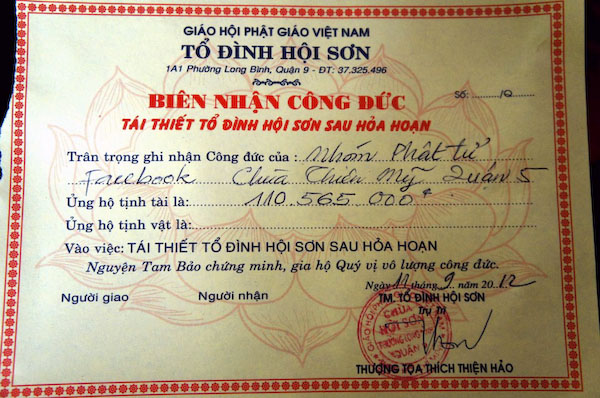 GIÁO HỘI PHẬT GIÁO VIỆT NAM
TỔ ĐÌNH HỘI SƠN
1A1 Phường Long Bình, Quận 9 - ĐT: 37.325.496
BIÊN NHẬN CÔNG ĐỨC
Số: 10
TÁI THIẾT TỔ ĐÌNH HỘI SƠN SAU HỎA HOẠN
Trân trọng ghi nhận Công đức của : Nhóm Phật tử
Facebook Chùa Thiên Mỹ Quận 5
Ủng hộ tịnh tài là: 110 565 000đ
Ủng hộ tịnh vật là:
Vào việc: TÁI THIẾT TỔ ĐÌNH HỘI SƠN SAU HỎA HOẠN
Nguyện Tam Bảo chứng minh, gia hộ Quý vị vô lượng công đức.
Ngày 11 tháng 9 năm 2012
Người giao Người nhận TM. TỔ ĐÌNH HỘI SƠN
Trụ trì
CHÙA HỘI SƠN
THƯỢNG TỌA THÍCH THIỆN HẢO